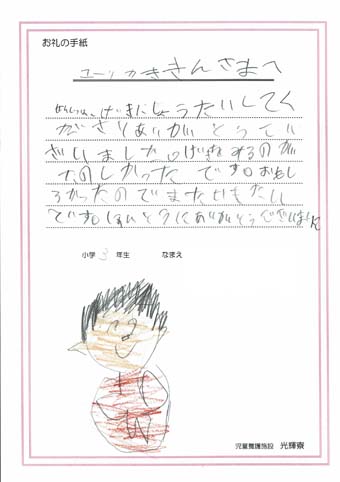 お礼の手紙
ユーリカききんさまへ
げきにしょうたいしてく
ださりありがとうござ
いました。げきをみるのが
たのしかったです。おもし
ろかったのでまたいきたい
です。ほんとうにありがとうございました
小学 3 年生 なまえ
児童養護施設 光輝寮